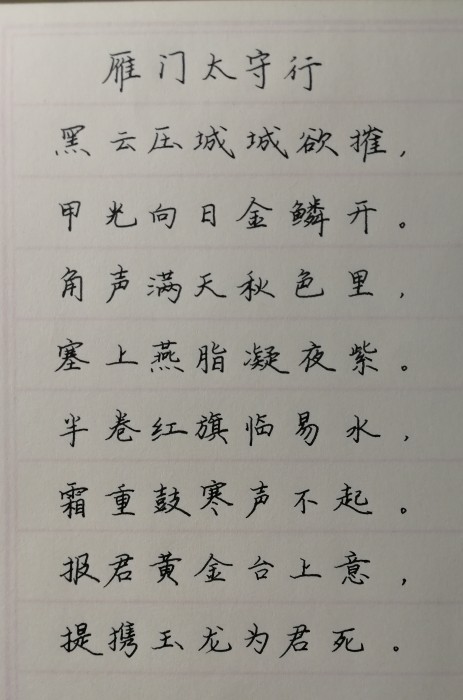 雁门太守行
黑云压城城欲摧，
甲光向日金鳞开。
角声满天秋色里，
塞上燕脂凝夜紫。
半卷红旗临易水，
霜重鼓寒声不起。
报君黄金台上意，
提携玉龙为君死。